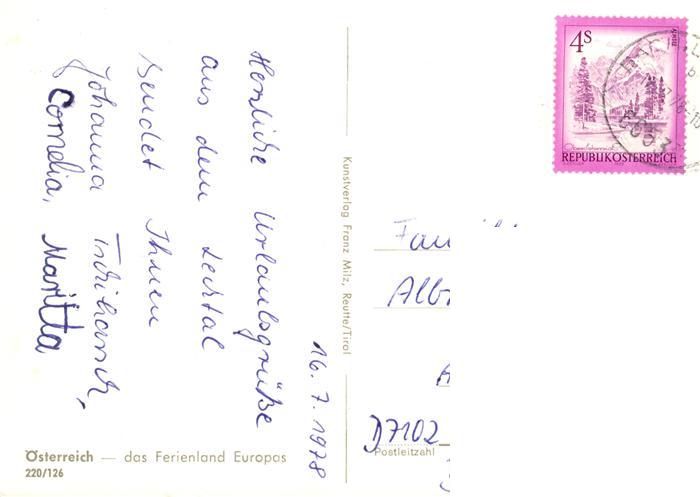 Herzliche Urlaubsgrüße
aus dem Lechtal
sendet Ihnen
Johanna
Cornelia, Maritta
16.7.1978
Österreich — das Ferienland Europas
220/126
Kunstverlag Franz Milz, Reutte/Tirol
4S
REPUBLIK ÖSTERREICH
D7102
Postleitzahl